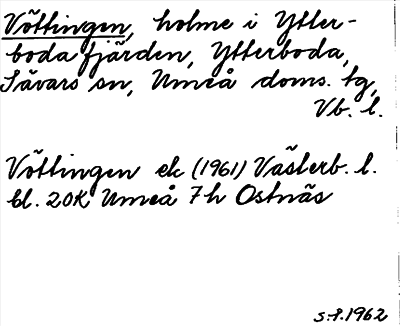 Vöttingen, holme i Ytter-
bodafjärden, Ytterboda,
Sävars sn, Umeå doms. tg,
Vb. l.
Vöttingen ek (1961) Västerb. l.
bl. 20K Umeå 7h Ostnäs
1962